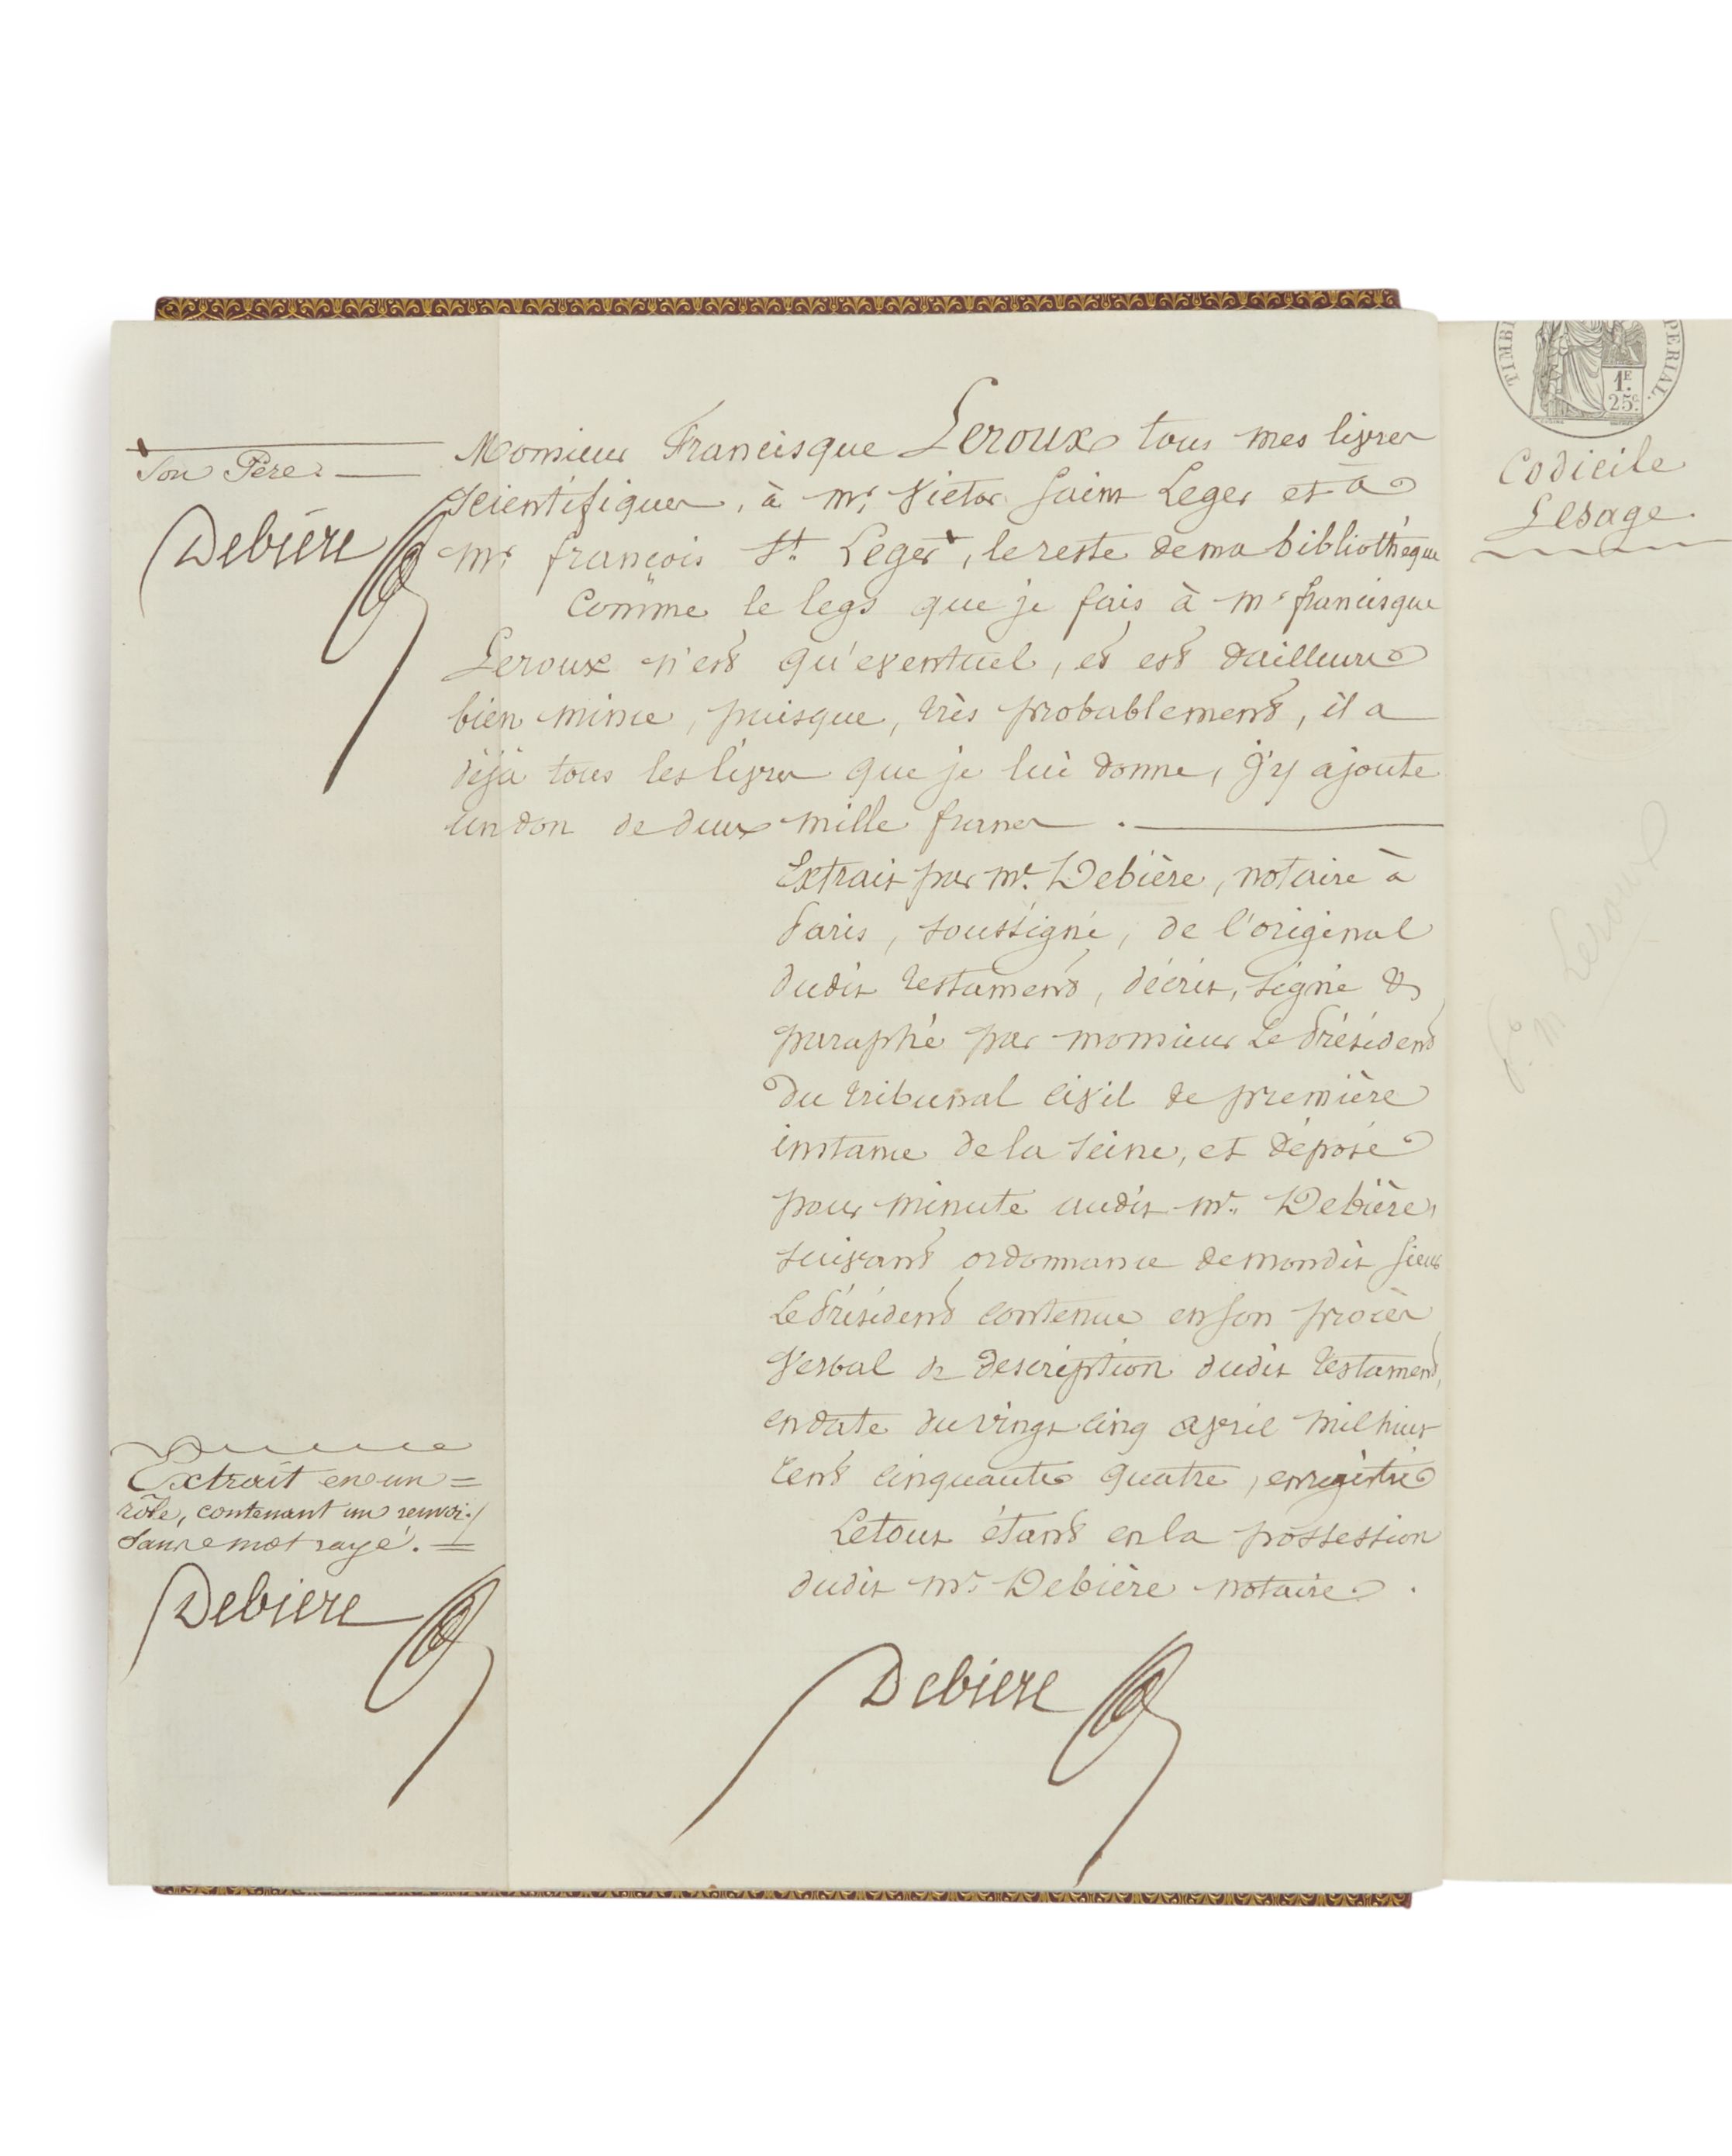 Son Père.
Debière
Monsieur Francisque Leroux tous mes livres
scientifiques, à Mr. Victor Saint Leger et à
Mr. françois St. Leger, le reste de ma bibliothèque
Comme le legs que je fais à Mr francisque
Leroux n'est qu'eventuel, et est dailleurs
bien mince, puisque, très probablement, il a
déjà tous les livres que je lui donne, j'y ajoute
un don de deux mille francs.
Extrait par Me. Debière, notaire à
Paris, soussigné, de l'original
dudit testament, décrit, signé &
paraphé par monsieur Le Président
Du tribunal civil de première
instance de la Seine, et déposé
pour minute audit Me. Debière,
suivant ordonnance de mondit Sieur
Le Président contenue en son procès
Verbal de description dudit testament,
en date du vingt cinq avril mil huit
cent cinquante quatre, enregistré
Le tout étant en la possession
dudit Me. Debière notaire.
Debière
Extrait en un
rôle, contenant un renvoi
sans mot rayé.
Debière
TIMB
PERIAL.
1F.
25c.
Codicile
Lesage.
Leroux